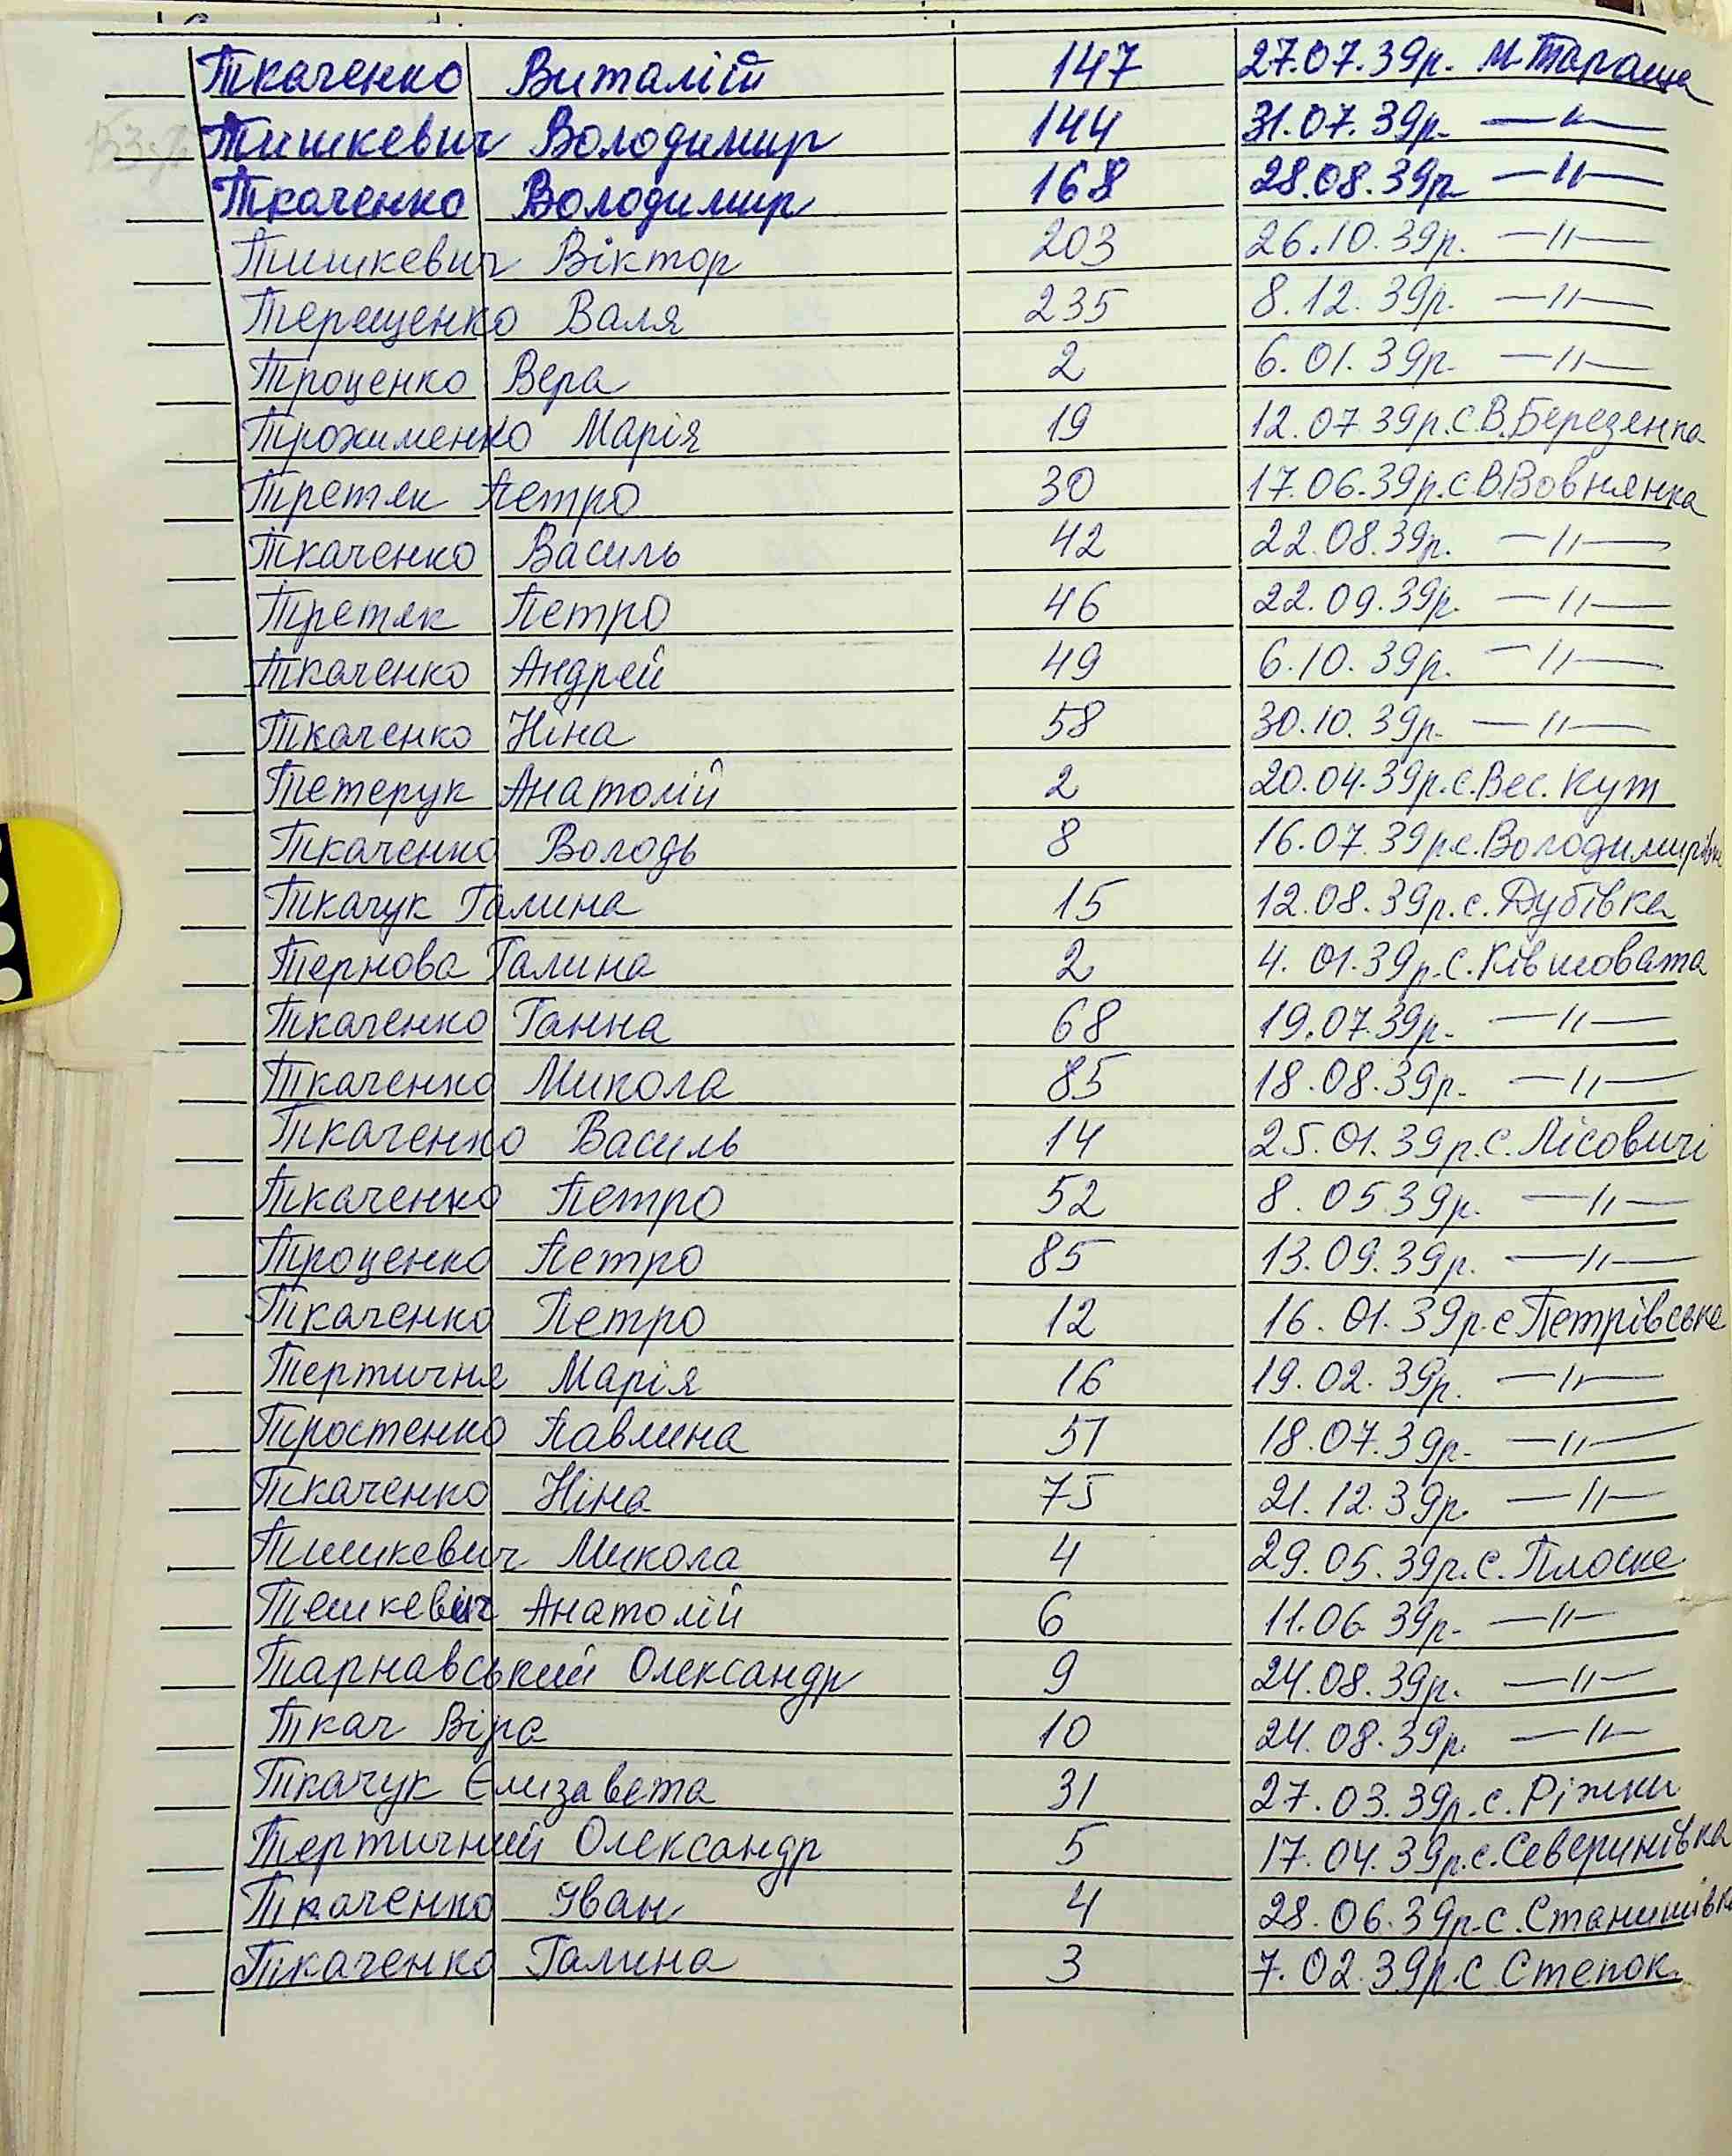 Ткаченко Виталій 147 27.07.39р. м Тараща
Тишкевич Володимир 144 31.07.39р. —"—
Ткаченко Володимир 168 28.08.39р —"—
Тишкевич Віктор 203 26.10.39р. —"—
Терещенко Валя 235 8.12.39р. —"—
Троценко Вера 2 6.01.39р. —"—
Трохименко Марія 19 12.07.39р. с.В.Березянка
Третяк Петро 30 17.06.39р. с В.Вовнянка
Ткаченко Василь 42 22.08.39р. —"—
Третяк Петро 46 22.09.39р. —"—
Ткаченко Андрей 49 6.10.39р. —"—
Ткаченко Ніна 58 30.10.39р. —"—
Тетерук Анатолій 2 20.04.39р. с.Вес. Кут
Ткаченко Володь 8 16.07.39р с. Володимирівка
Ткачук Галина 15 12.08.39р. с. Дубівка
Тернова Галина 2 4.01.39р. с. Ківшовата
Ткаченко Ганна 68 19.07.39р. —"—
Ткаченко Микола 85 18.08.39р. —"—
Ткаченко Василь 14 25.01.39р. с. Лісовичі
Ткаченко Петро 52 8.05.39р. —"—
Троценко Петро 85 13.09.39р. —"—
Ткаченко Петро 12 16.01.39р. с Петрівське
Тертична Марія 16 19.02.39р. —"—
Тростенко Павлина 51 18.07.39р. —"—
Ткаченко Ніна 75 21.12.39р. —"—
Тишкевич Микола 4 29.05.39р. с. Плоске
Тешкевич Анатолій 6 11.06.39р. —"—
Тарнавський Олександр 9 24.08.39р. —"—
Ткач Віра 10 24.08.39р. —"—
Ткачук Єлизавета 31 27.03.39р. с. Ріжки
Тертичний Олександр 5 17.04.39р. с. Северинівка
Ткаченко Іван 4 28.06.39р. с. Станишівка
Ткаченко Галина 3 7.02.39р. с Степок.